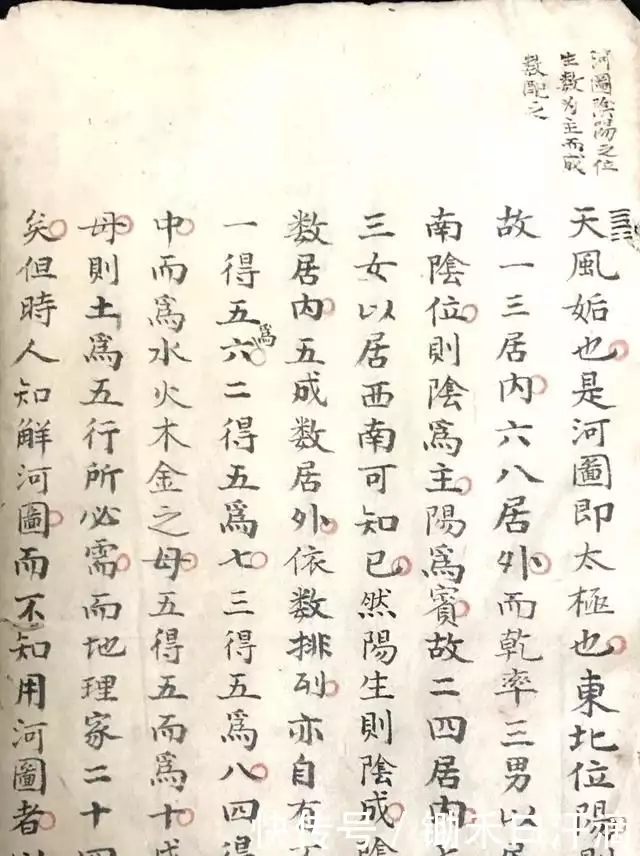 河圖陰陽之位
生數为主而成
數配之
天風姤也是河圖即太極也東北位陽
故一三居内六八居外而乾率三男以
南陰位則陰爲主陽爲賓故二四居内
三女以居西南可知已然陽生則陰成陰
數居内五成數居外依數排列亦自有
一得五爲六二得五爲七三得五爲八四得
中而爲水火木金之母五得五而爲十成
母則土爲五行所必需而地理家二十四
矣但時人知解河圖而不知用河圖者
快传号 / 锄禾日汗